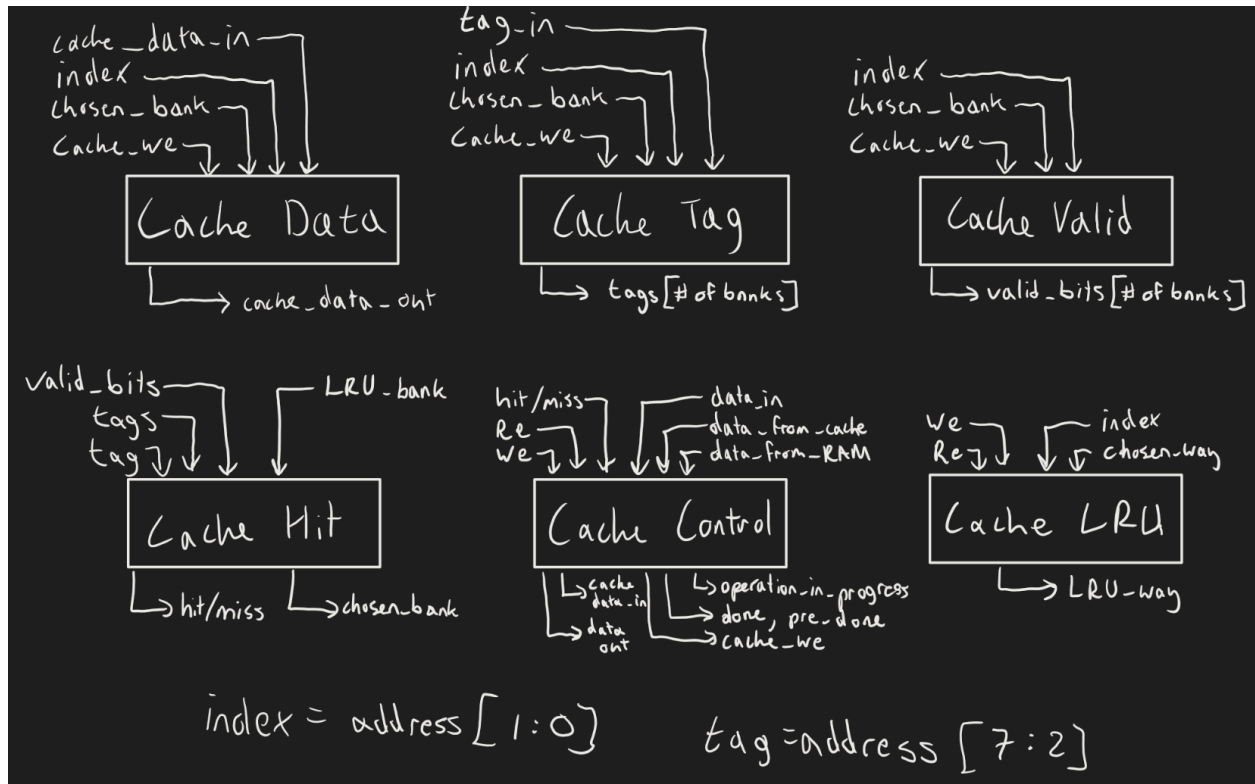 cache_data_in
index
chosen_bank
Cache_we
Cache Data
cache_data_out
tag_in
index
chosen_bank
Cache_we
Cache Tag
tags [# of banks]
index
chosen_bank
Cache_we
Cache Valid
valid_bits [# of banks]
valid_bits
tags
tag
LRU_bank
Cache Hit
hit/miss
chosen_bank
hit/miss
Re
We
data_in
data_from_cache
data_from_RAM
Cache Control
cache
data_in
data
out
operation_in_progress
done, pre_done
cache_we
We
Re
index
chosen-way
Cache LRU
LRU-way
index = address [1:0]
tag=address [7:2]